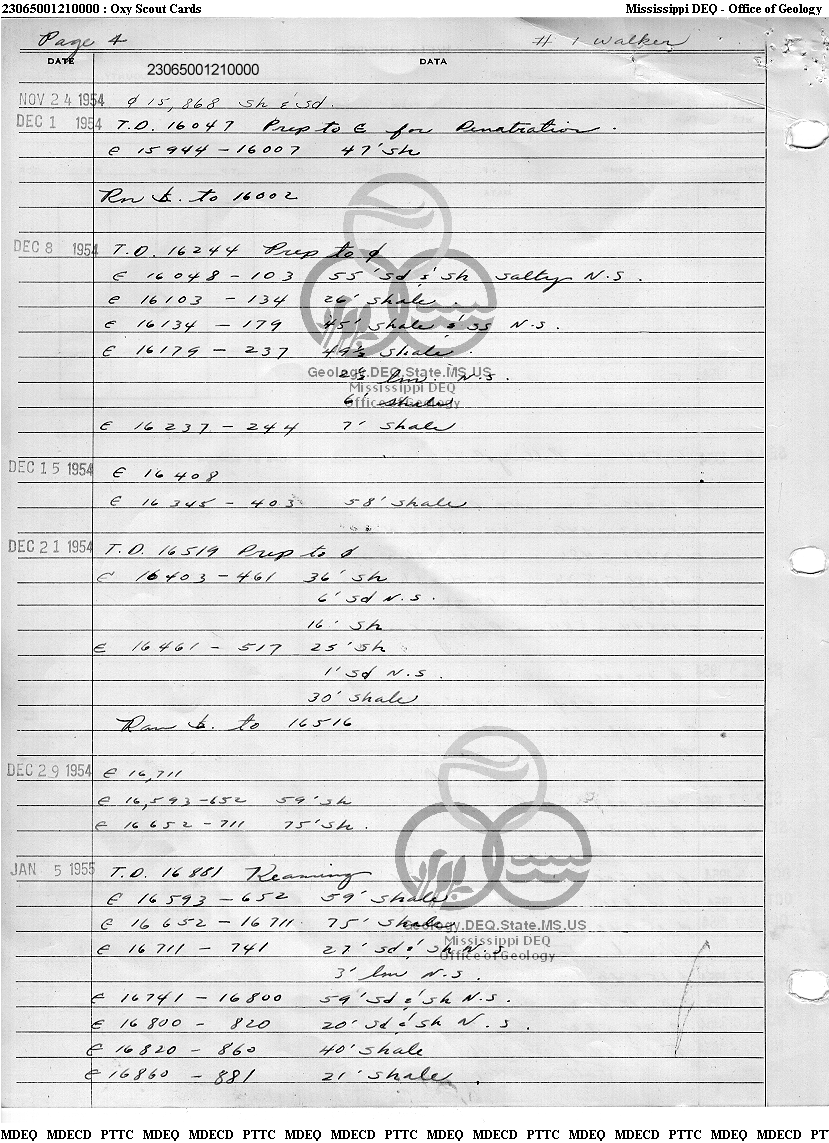 23065001210000 : Oxy Scout Cards Mississippi DEQ - Office of Geology
Page 4 # 1 Walker
DATE DATA
23065001210000
NOV 24 1954 ¢ 15,868 sh & sd.
DEC 1 1954 T.D. 16047 Prep to C for Penatration.
C 15944 - 16007 47' sh
Rn to 16002
DEC 8 1954 T.D. 16244 Prep to ¢
C 16048 - 103 55' sd & sh salty N.S.
C 16103 - 134 26' shale.
C 16134 - 179 45' shale & ss N.S.
C 16179 - 237 49½ shale.
2½ lm N.S.
Geology.DEQ.State.MS.US
Mississippi DEQ
Office of Geology
6' shale
C 16237 - 244 7' shale
DEC 15 1954 C 16408
C 16345 - 403 58' shale
DEC 21 1954 T.D. 16519 Prep to ¢
C 16403 - 461 36' sh
6' sd N.S.
16' sh
C 16461 - 517 25' sh
1' sd N.S.
30' shale
Ran to 16516
DEC 29 1954 C 16,711
C 16,593-652 59' sh
C 16652 - 711 75' sh.
JAN 5 1955 T.D. 16881 Reaming
C 16593 - 652 59' shale
C 16652 - 16711 75' shale
Geology.DEQ.State.MS.US
C 16711 - 741 27' sd & sh N.S.
Mississippi DEQ
Office of Geology
3' lm N.S.
C 16741 - 16800 59' sd & sh N.S.
C 16800 - 820 20' sd & sh N.S.
C 16820 - 860 40' shale
C 16860 - 881 21' shale.
MDEQ MDECD PTTC MDEQ MDECD PTTC MDEQ MDECD PTTC MDEQ MDECD PTTC MDEQ MDECD PTTC MDEQ MDECD PT